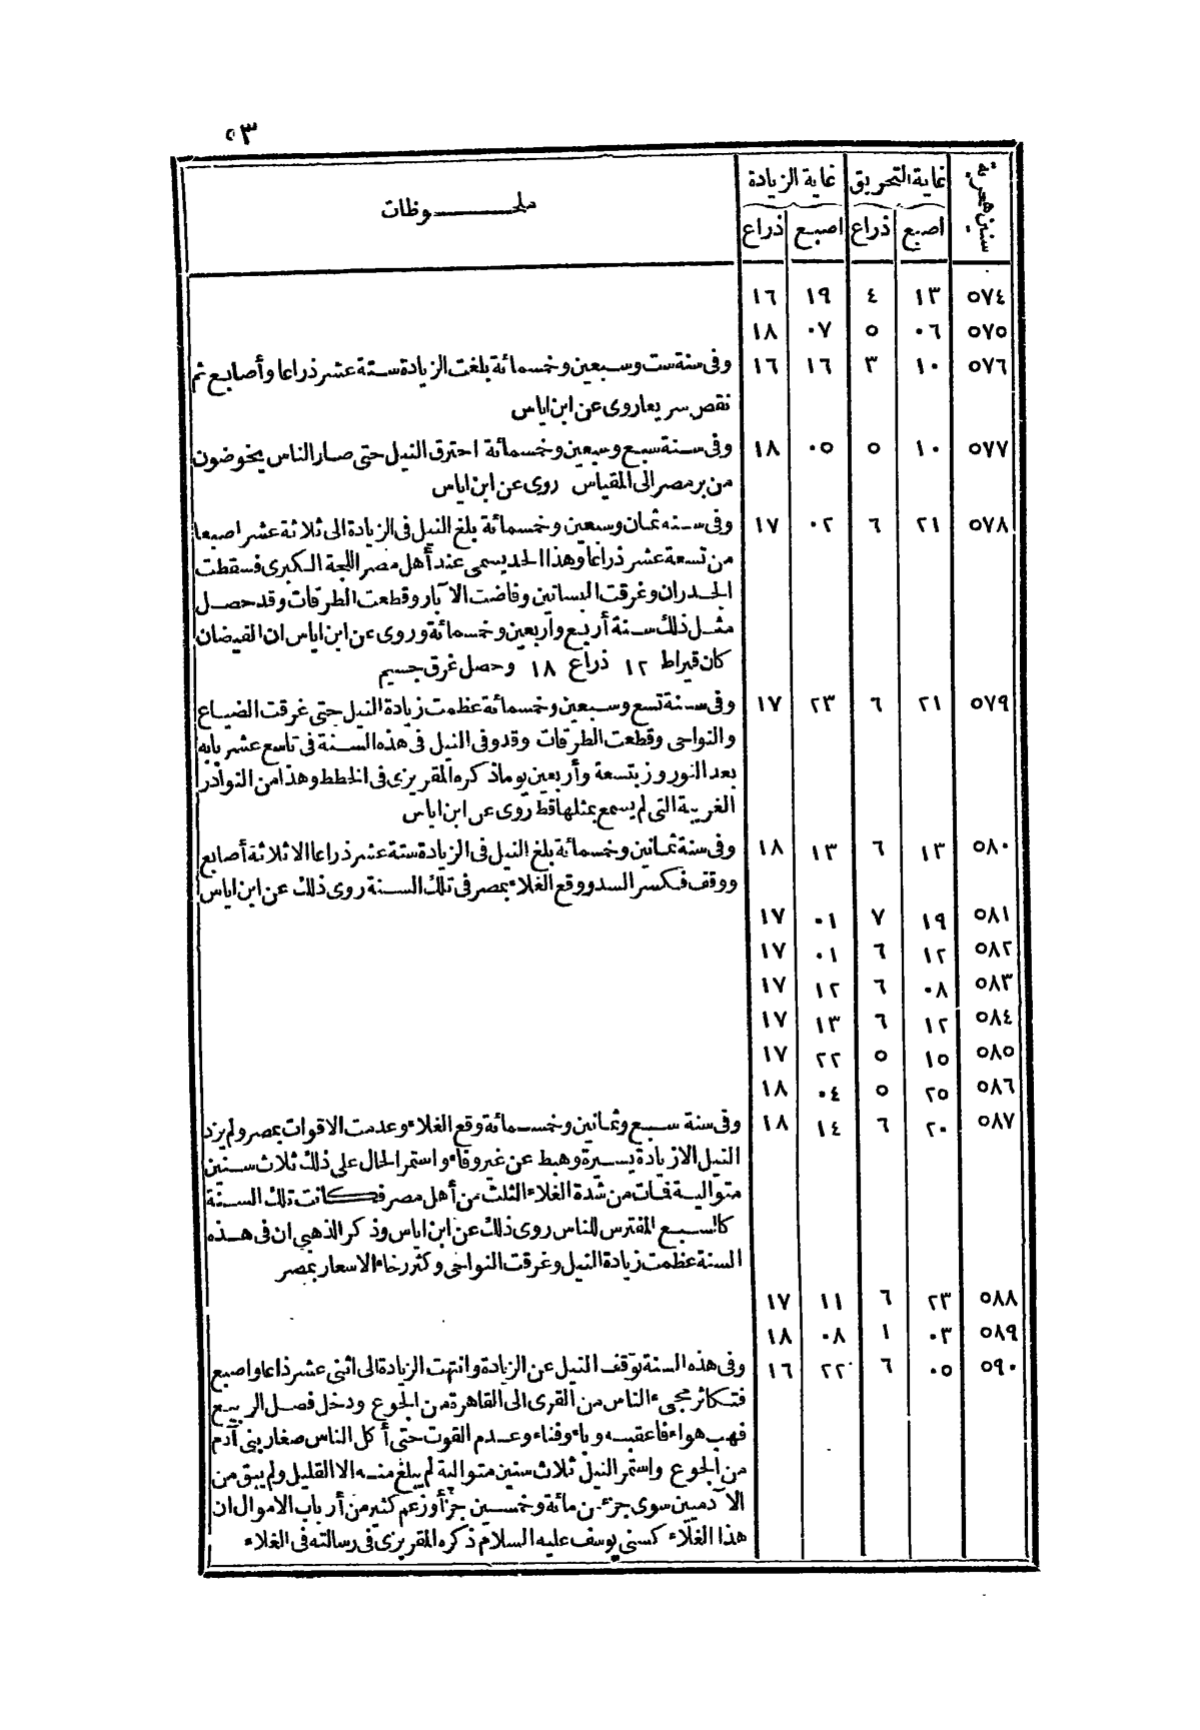 ٥٣
سنين هجرية | غاية التحريق | غاية الزيادة | ملحـــــوظات
اصبع | ذراع | اصبع | ذراع
٥٧٤ | ١٣ | ٤ | ١٩ | ١٦
٥٧٥ | ٠٦ | ٥ | ٠٧ | ١٨
٥٧٦ | ١٠ | ٣ | ١٦ | ١٦ | وفى سنة ست وسبعين وخمسمائة بلغت الزيادة ستة عشر ذراعا وأصابع ثم
نقص سريعا روى عن ابن اياس
٥٧٧ | ١٠ | ٥ | ٠٥ | ١٨ | وفى سنة سبع وسبعين وخمسمائة احترق النيل حتى صار الناس يخوضون
من بر مصر الى المقياس روى عن ابن اياس
٥٧٨ | ٢١ | ٦ | ٠٢ | ١٧ | وفى سنه ثمان وسبعين وخمسمائة بلغ النيل فى الزيادة الى ثلاثة عشر اصبعا
من تسعة عشر ذراعا وهذا الحد يسمى عند أهل مصر اللجة الكبرى فسقطت
الجدران وغرقت البساتين وفاضت الآبار وقطعت الطرقات وقد حصل
مثل ذلك سنة أربع وأربعين وخمسمائة وروى عن ابن اياس ان الفيضان
كان قيراط ١٢ ذراع ١٨ وحصل غرق جسيم
٥٧٩ | ٢١ | ٦ | ٢٣ | ١٧ | وفى سنة تسع وسبعين وخمسمائة عظمت زيادة النيل حتى غرقت الضياع
والنواحى وقطعت الطرقات وقد وفى النيل فى هذه السنة فى تاسع عشر بابه
بعد النوروز بتسعة وأربعين يوما ذكره المقريزى فى الخطط وهذا من النوادر
الغريبة التى لم يسمع بمثلها قط روى عن ابن اياس
٥٨٠ | ١٣ | ٦ | ١٣ | ١٨ | وفى سنة ثمانين وخمسمائة بلغ النيل فى الزيادة ستة عشر ذراعا الا ثلاثة أصابع
ووقف فكسر السد ووقع الغلاء بمصر فى تلك السنة روى ذلك عن ابن اياس
٥٨١ | ١٩ | ٧ | ٠١ | ١٧
٥٨٢ | ١٢ | ٦ | ٠١ | ١٧
٥٨٣ | ٠٨ | ٦ | ١٢ | ١٧
٥٨٤ | ١٢ | ٦ | ١٣ | ١٧
٥٨٥ | ١٥ | ٥ | ٢٢ | ١٧
٥٨٦ | ٢٥ | ٥ | ٠٤ | ١٨
٥٨٧ | ٢٠ | ٦ | ١٤ | ١٨ | وفى سنة سبع وثمانين وخمسمائة وقع الغلاء وعدمت الاقوات بمصر ولم يزد
النيل الا زيادة يسيرة وهبط عن غير وفاء واستمر الحال على ذلك ثلاث سنين
متوالية فمات من شدة الغلاء الثلث من أهل مصر فكانت تلك السنة
كالسبع المفترس للناس روى ذلك عن ابن اياس وذكر الذهبى ان فى هذه
السنة عظمت زيادة النيل وغرقت النواحى وكثر رخاء الاسعار بمصر
٥٨٨ | ٢٣ | ٦ | ١١ | ١٧
٥٨٩ | ٠٣ | ١ | ٠٨ | ١٨
٥٩٠ | ٠٥ | ٦ | ٢٢ | ١٦ | وفى هذه السنة توقف النيل عن الزيادة وانتهت الزيادة الى اثنى عشر ذراعا واصبع
فتكاثر مجىء الناس من القرى الى القاهرة من الجوع ودخل فصل الربيع
فهب هواء فاعقبه وباء وفناء وعدم القوت حتى أكل الناس صغار بنى آدم
من الجوع واستمر النيل ثلاث سنين متوالية لم يبلغ منه الا القليل ولم يبق من
الآدميين سوى جزء من مائة وخمسين جزأ وزعم كثير من أرباب الاموال ان
هذا الغلاء كسنى يوسف عليه السلام ذكره المقريزى فى رسالته فى الغلاء